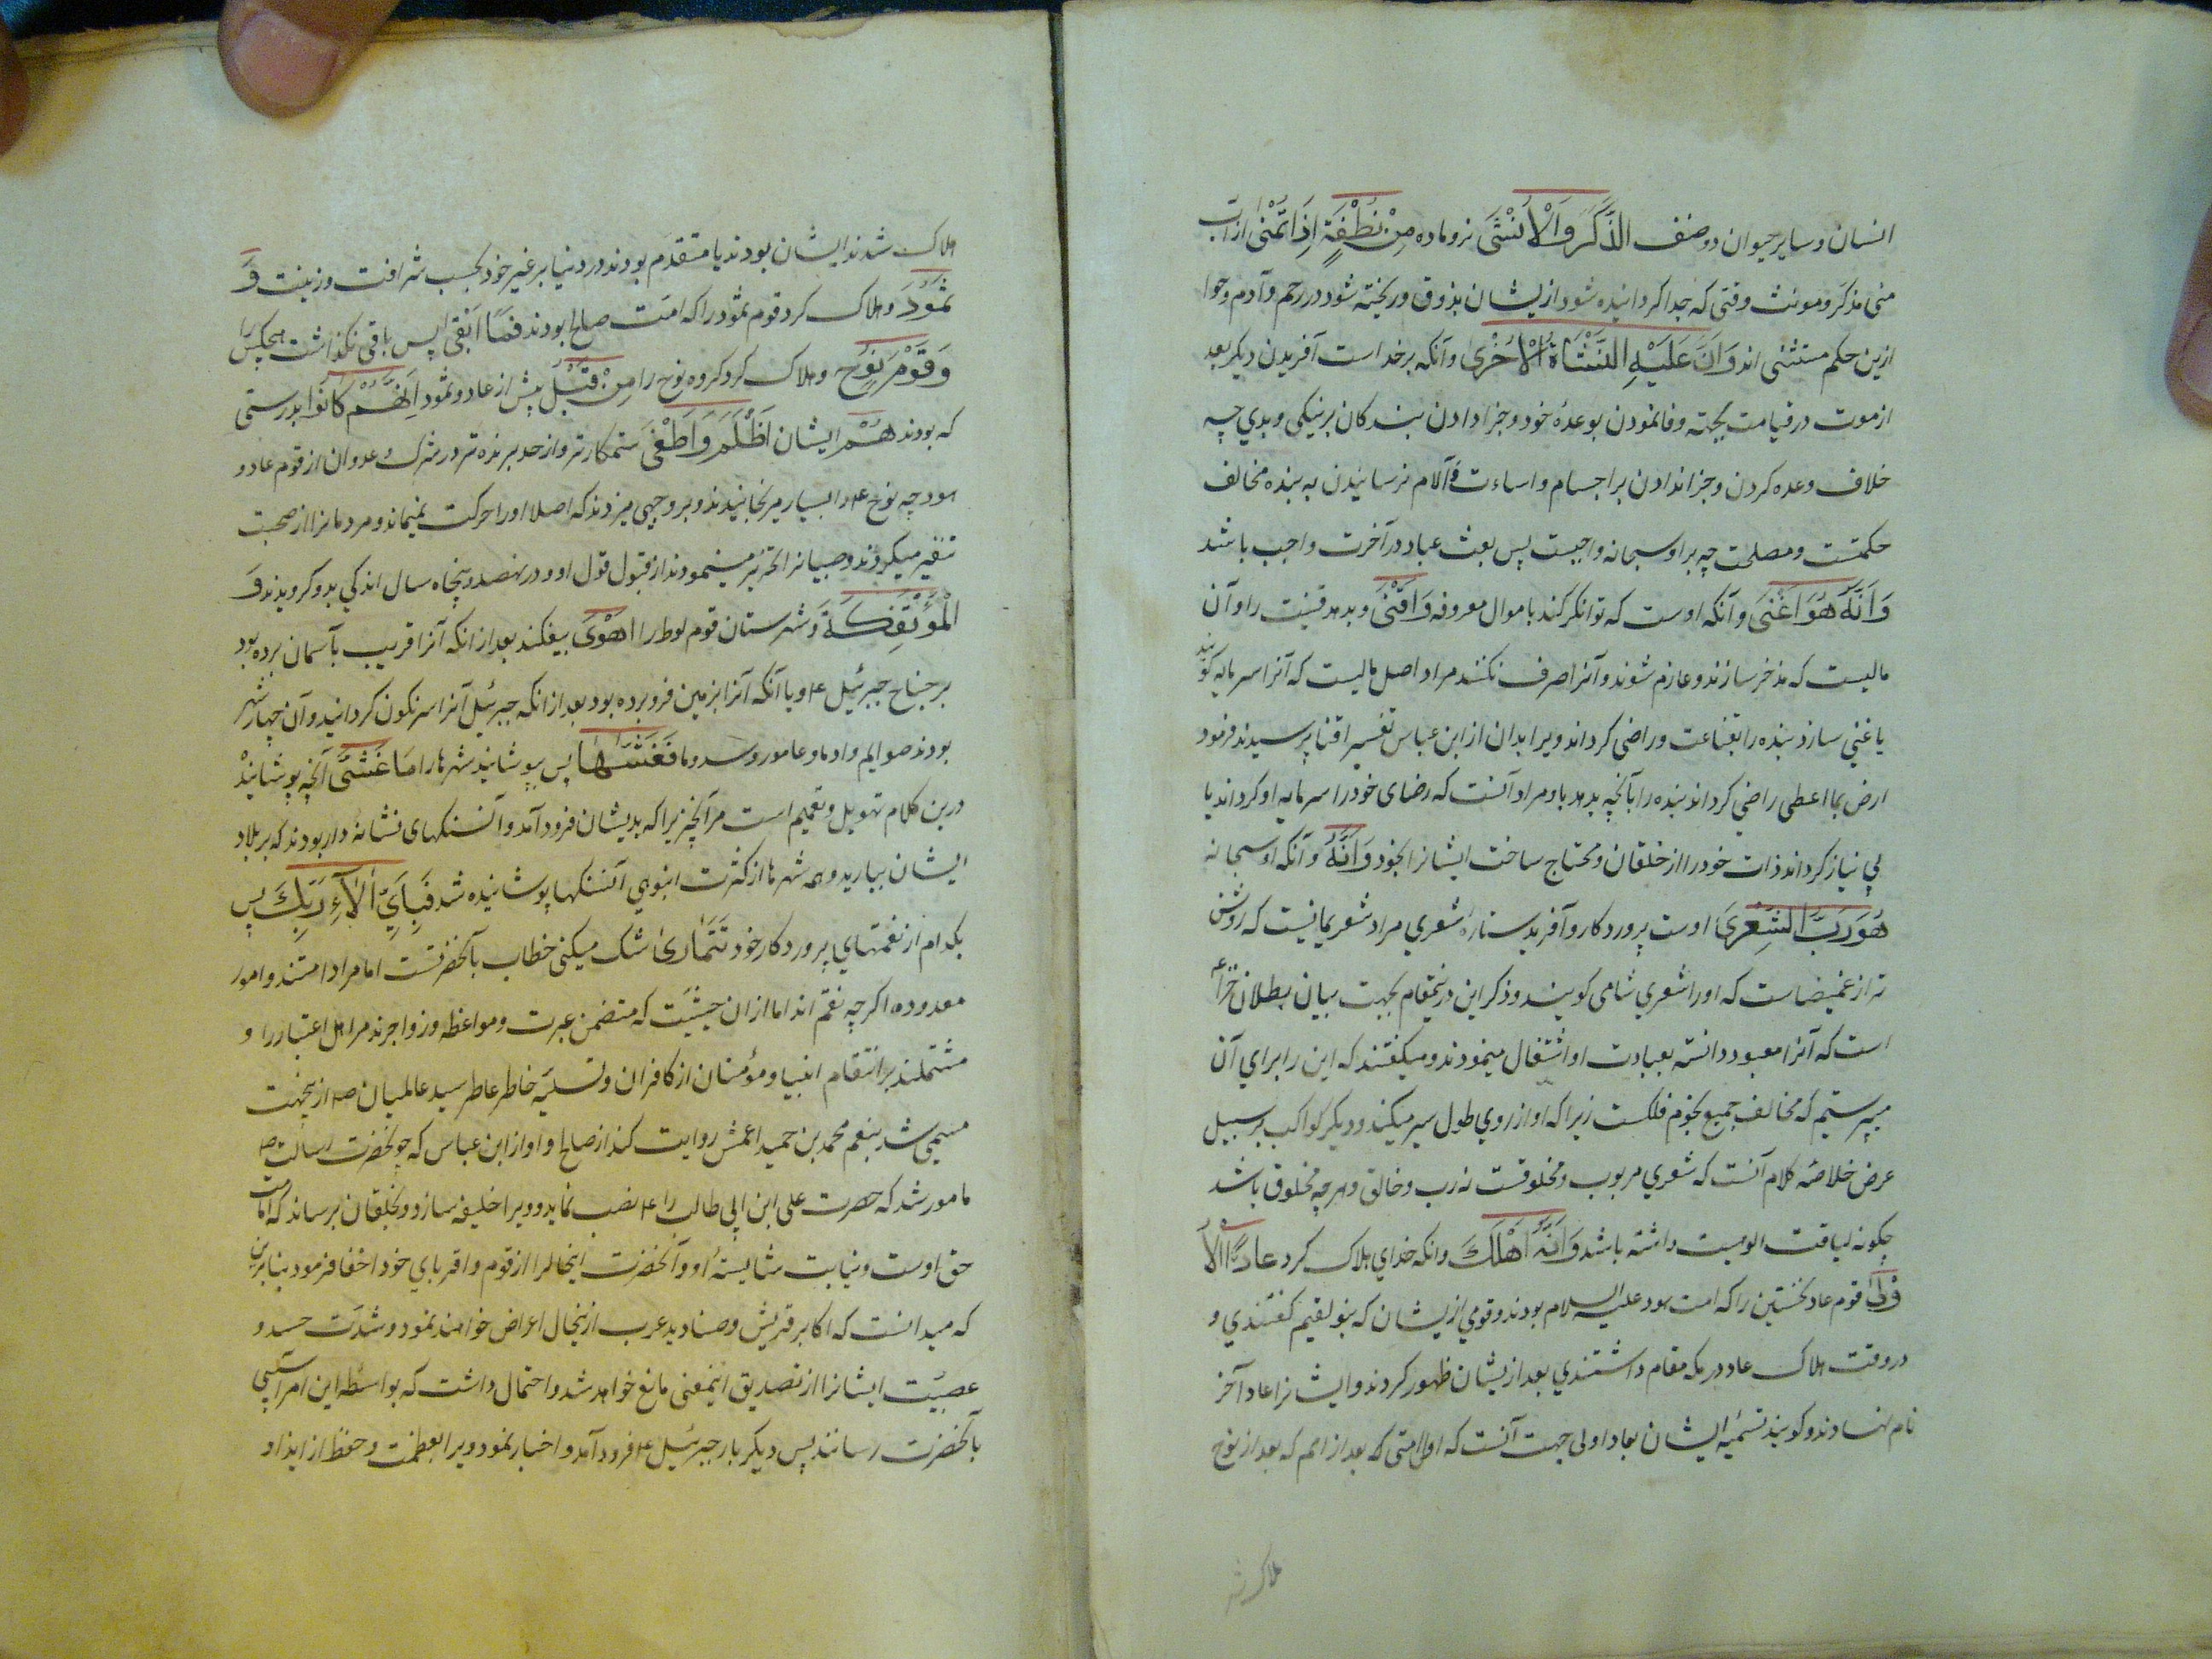 انسان و سایر حیوان دو صنف الذَّكَرَ وَالْاُنْثَى نر و ماده مِنْ نُطْفَةٍ اِذَا تُمْنٰى از آب
منی مذکر و مونث وقتی که جدا کردانیده شود ازیشان بذوق و ریخته شود در رحم و آدم و حوا
ازین حکم مستثنی اند وَاَنَّ عَلَيْهِ النَّشْاَةَ الْاُخْرىٰ و آنکه برخداست آفریدن دیکر بعد
از موت در قیامت بجهته وفا نمودن بوعدهٔ خود و جزا دادن بندکان بر نیکی و بدي چه
خلاف وعده کردن و جزا ندادن بر اجسام و اساءت و آلام نرسانیدن به بنده مخالف
حکمتست و مصلحت چه بر او سبحانه واجبست پس بعث عباد در آخرت واجب باشد
وَاَنَّهُ هُوَ اَغْنٰى و آنکه اوست که توانکر کند باموال معروفه وَاَقْنٰى و بدهد قنیت را و آن
مالیست که مذخر سازند و عازم شوند و آنرا صرف نکنند مراد اصل مالیست که آنرا سرمایه کویند
یا غنی سازد بنده را بقناعت و راضی کرداند ویرا بدان از ابن عباس تفسیر اقنا پرسیدند فرمود
ارض بما اعطی راضي کرداند بنده را بآنچه بدهد باو مراد آنست که رضای خود را سرمایه او کرداند یا
بي نیاز کرداند ذات خود را از خلقان و محتاج ساخت ایشانرا بخود وَاَنَّهُ و آنکه او سبحانه
هُوَ رَبُّ الشِّعْرىٰ اوست پروردکار و آفرید ستارهٔ شعري مراد شعر یمانیست که روشن
تر از غمیضاست که او را شعري شامی کویند و ذکر این درینمقام بجهت بیان بطلان خزاعه
است که آنرا معبود دانسته بعبادت او اشتغال مینمودند و میکفتند که این را برای آن
میپرستیم که مخالف جمیع نجوم فلکست زیرا که او از روي طول سیر میکند و دیکر کواکب بر سبیل
عرض خلاصه کلام آنست که شعري مربوب و مخلوقست نه رب و خالق و هرچه مخلوق باشد
چکونه لیاقت الوهیت داشته باشد وَاَنَّهُ اَهْلَكَ و انکه خدای هلاک کرد عَادًا الْاُ
وْلىٰ قوم عاد نخستین را که امت هود علیه السلام بودند و قومي ازیشان که بنو لقیم کفتندي و
در وقت هلاک عاد در مکه مقام داشتندي بعد ازیشان ظهور کردند و ایشانرا عاد آخر
نام نهادند و کویند تسمیه ایشان بعاد اولی جهت آنست که اول امتی که بعد از امم که بعد از نوح
هلاک شد
هلاک شدند ایشان بودند یا متقدم بودند در دنیا بر غیر خود بحسب شرافت و زینت وَ
ثَمُودَ و هلاک کرد قوم ثمود را که امت صالح بودند فَمَا اَبْقٰى پس باقی نکذاشت هیچکس را
وَقَوْمَ نُوحٍ و هلاک کرد کروه نوح را مِنْ قَبْلُ پیش از عاد و ثمود اِنَّهُمْ كَانُوا بدرستی
که بودند هُمْ ایشان اَظْلَمَ وَاَطْغٰى ستمکارتر و از حد برنده تر در شرک و عدوان از قوم عاد و
هود چه نوح ع را بسیار میرنجانیدند و بروجهی میزدند که اصلا او را حرکت نمیماند و مردمانرا از صحبت
تنفیر میکردند و صبیانرا تحذیر مینمودند از قبول قول او و در نهصد و پنجاه سال اندکی بدو کرویدند وَ
الْمُؤْتَفِكَةَ و شهرستان قوم لوط را اَهْوٰى بیفکند بعد از انکه آنرا قریب بآسمان برده بود
بر جناح جبرئیل ع و یا آنکه آنرا بزمین فرو برده بود بعد از انکه جبرئیل آنرا سرنکون کردانید و آن چهار شهر
بودند صوایم و ادما و عامورو سدوما فَغَشّٰيهَا پس بپوشانید شهرها را مَا غَشّٰى آنچه پوشانید
درین کلام تهویل و تعمیم است مر آنچیزیرا که بدیشان فرود آمد و آن سنکهای نشانه دار بودند که بر بلاد
ایشان ببارید و همه شهرها از کثرت انبوهي آن سنکها پوشانیده شد فَبِاَيِّ اٰلَاءِ رَبِّكَ پس
بکدام از نعمتهاي پروردکار خود تَتَمَارىٰ شک میکنی خطاب بآنحضرتست اما مراد امتند و امور
معدوده اکرچه نقم اند اما از آن حیثیت که متضمن عبرت و مواعظه و زواجرند مر اهل اعتبار را و
مشتملند بر انتقام انبیا و مؤمنان از کافران و تسلیه خاطر عاطر سید عالمیان ص ازینجهت
مسمی شد بنعم محمد بن حمید اعمش روایت کند از صالح و او از ابن عباس که چو نحضرت رسالت ص
مامور شد که حضرت علی ابن ابي طالب را ع نصب نماید و ویرا خلیفه سازد و بخلقان برساند که امامت
حق اوست و نیابت شایستهٔ او و آنحضرت اینحالرا از قوم و اقرباي خود اخفا فرمود بنابرین
که میدانست که اکابر قریش و صنادید عرب ازینحال اعراض خواهند نمود و شدّت حسد و
عصبیّت ایشانرا از تصدیق اینمعنی مانع خواهد شد و احتمال داشت که بواسطهٔ این امر آسیبی
بآنحضرت رسانند پس دیکر بار جبرئیل ع فرود آمد و اخبار نمود ویرا بعظمت و حفظ از ایذا و